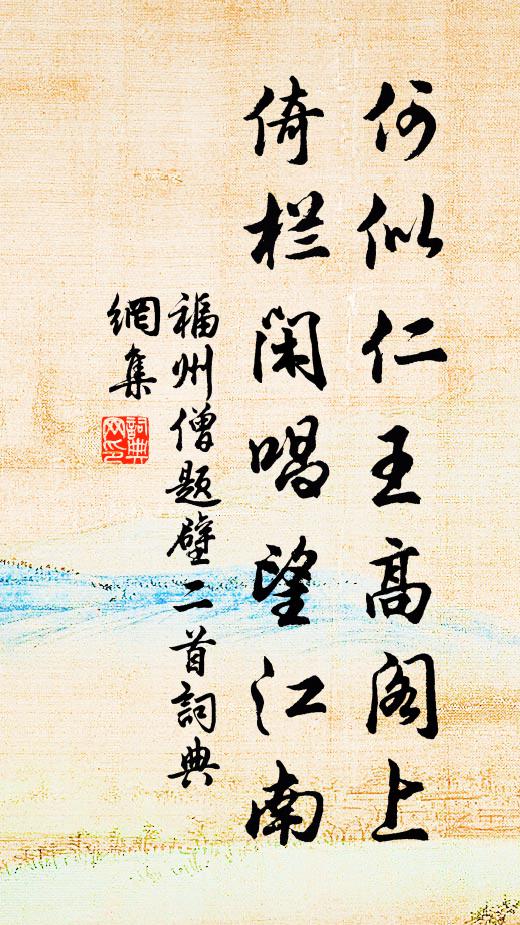 何似仁王高阁上
倚栏闲唱望江南
福州僧题壁二首詞典
網集
詞典
网印